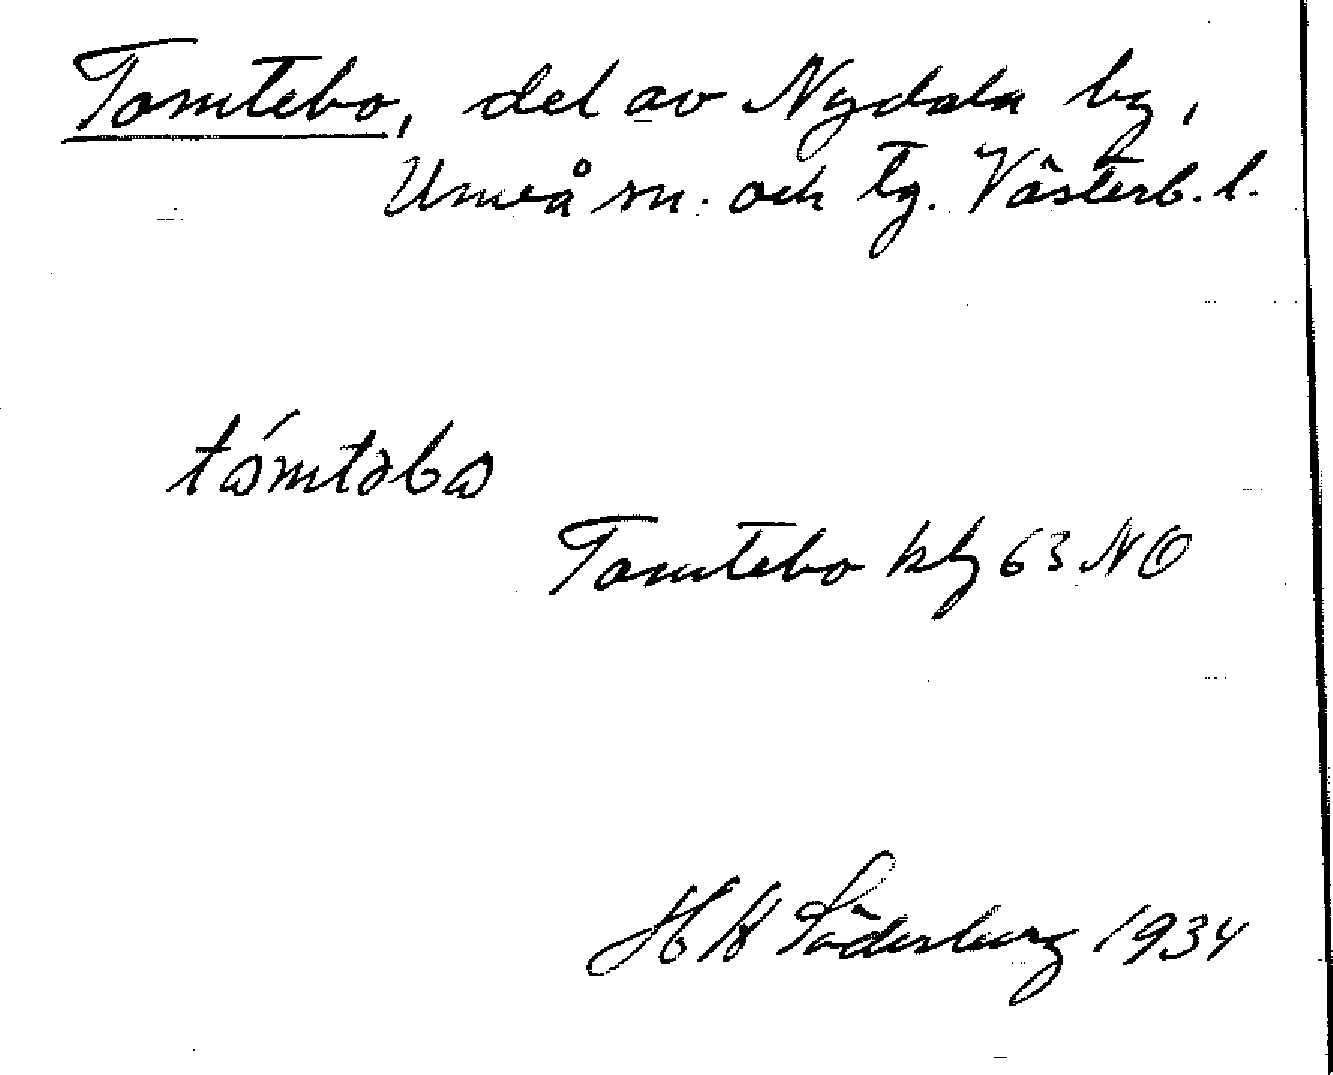 Tomtebo, del av Nydala by,
Umeå sn. och tg. Västerb. l.
tómtəbo
Tomtebo kbg 63 NO
H W Söderberg 1934